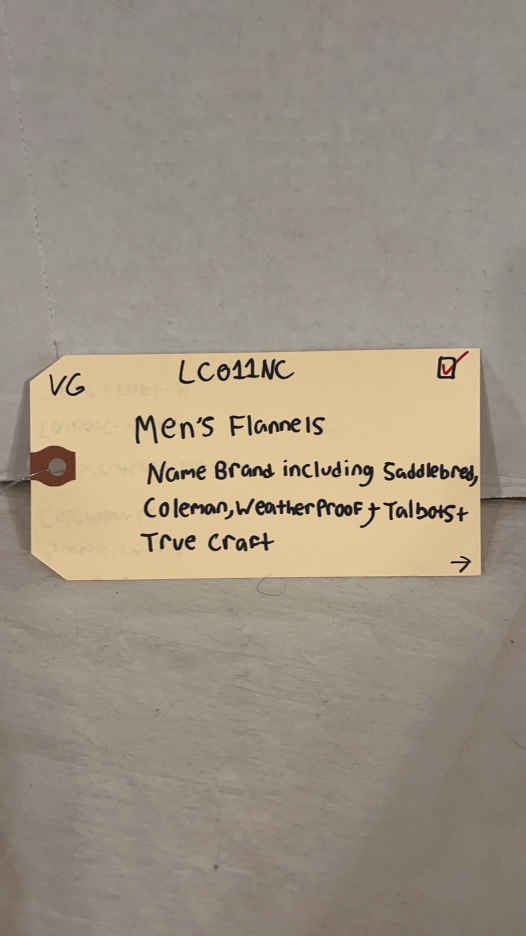 VG
LC011NC
Men's Flannels
Name Brand including Saddlebred,
Coleman, WeatherProof + Talbots +
True Craft
→